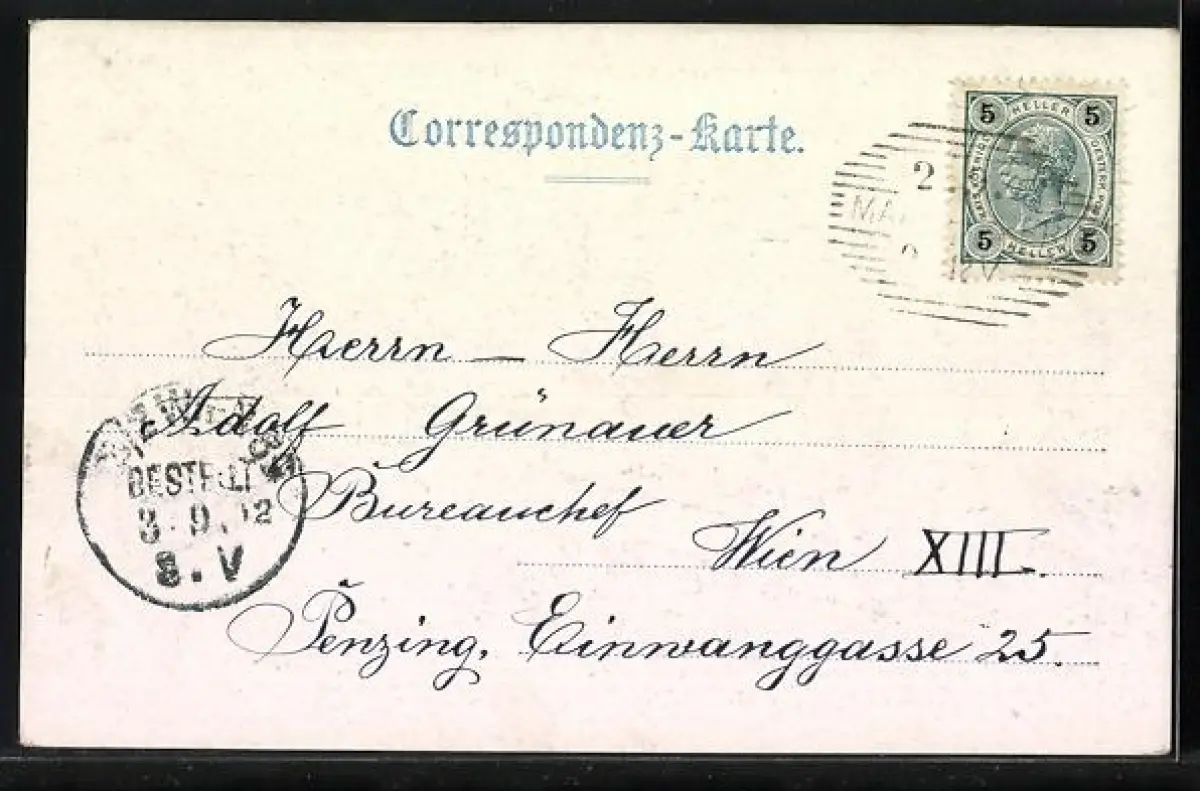 Correspondenz-Karte.
5 HELLER 5
5 HELLER 5
2
Herrn — Herrn
Adolf Grünauer
BESTELLT
3. 9. 02
8. V
Bureauchef
Wien XIII.
Penzing, Einwanggasse 25.